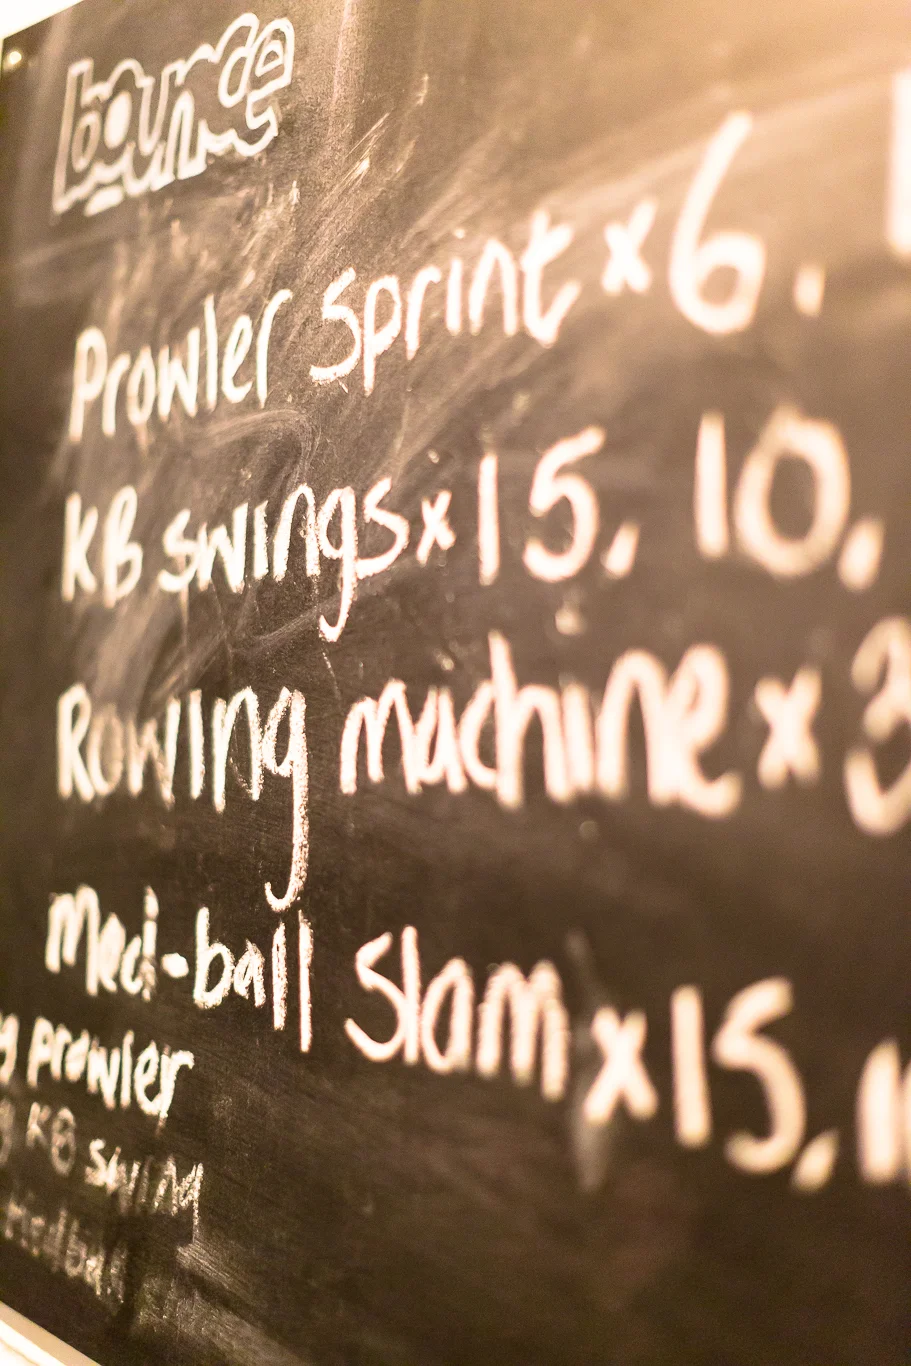 bounce
Prowler Sprint x 6,
KB swings x 15, 10,
Rowing machine x 3
Medi-ball Slam x 15, 1
prowler
KB swing